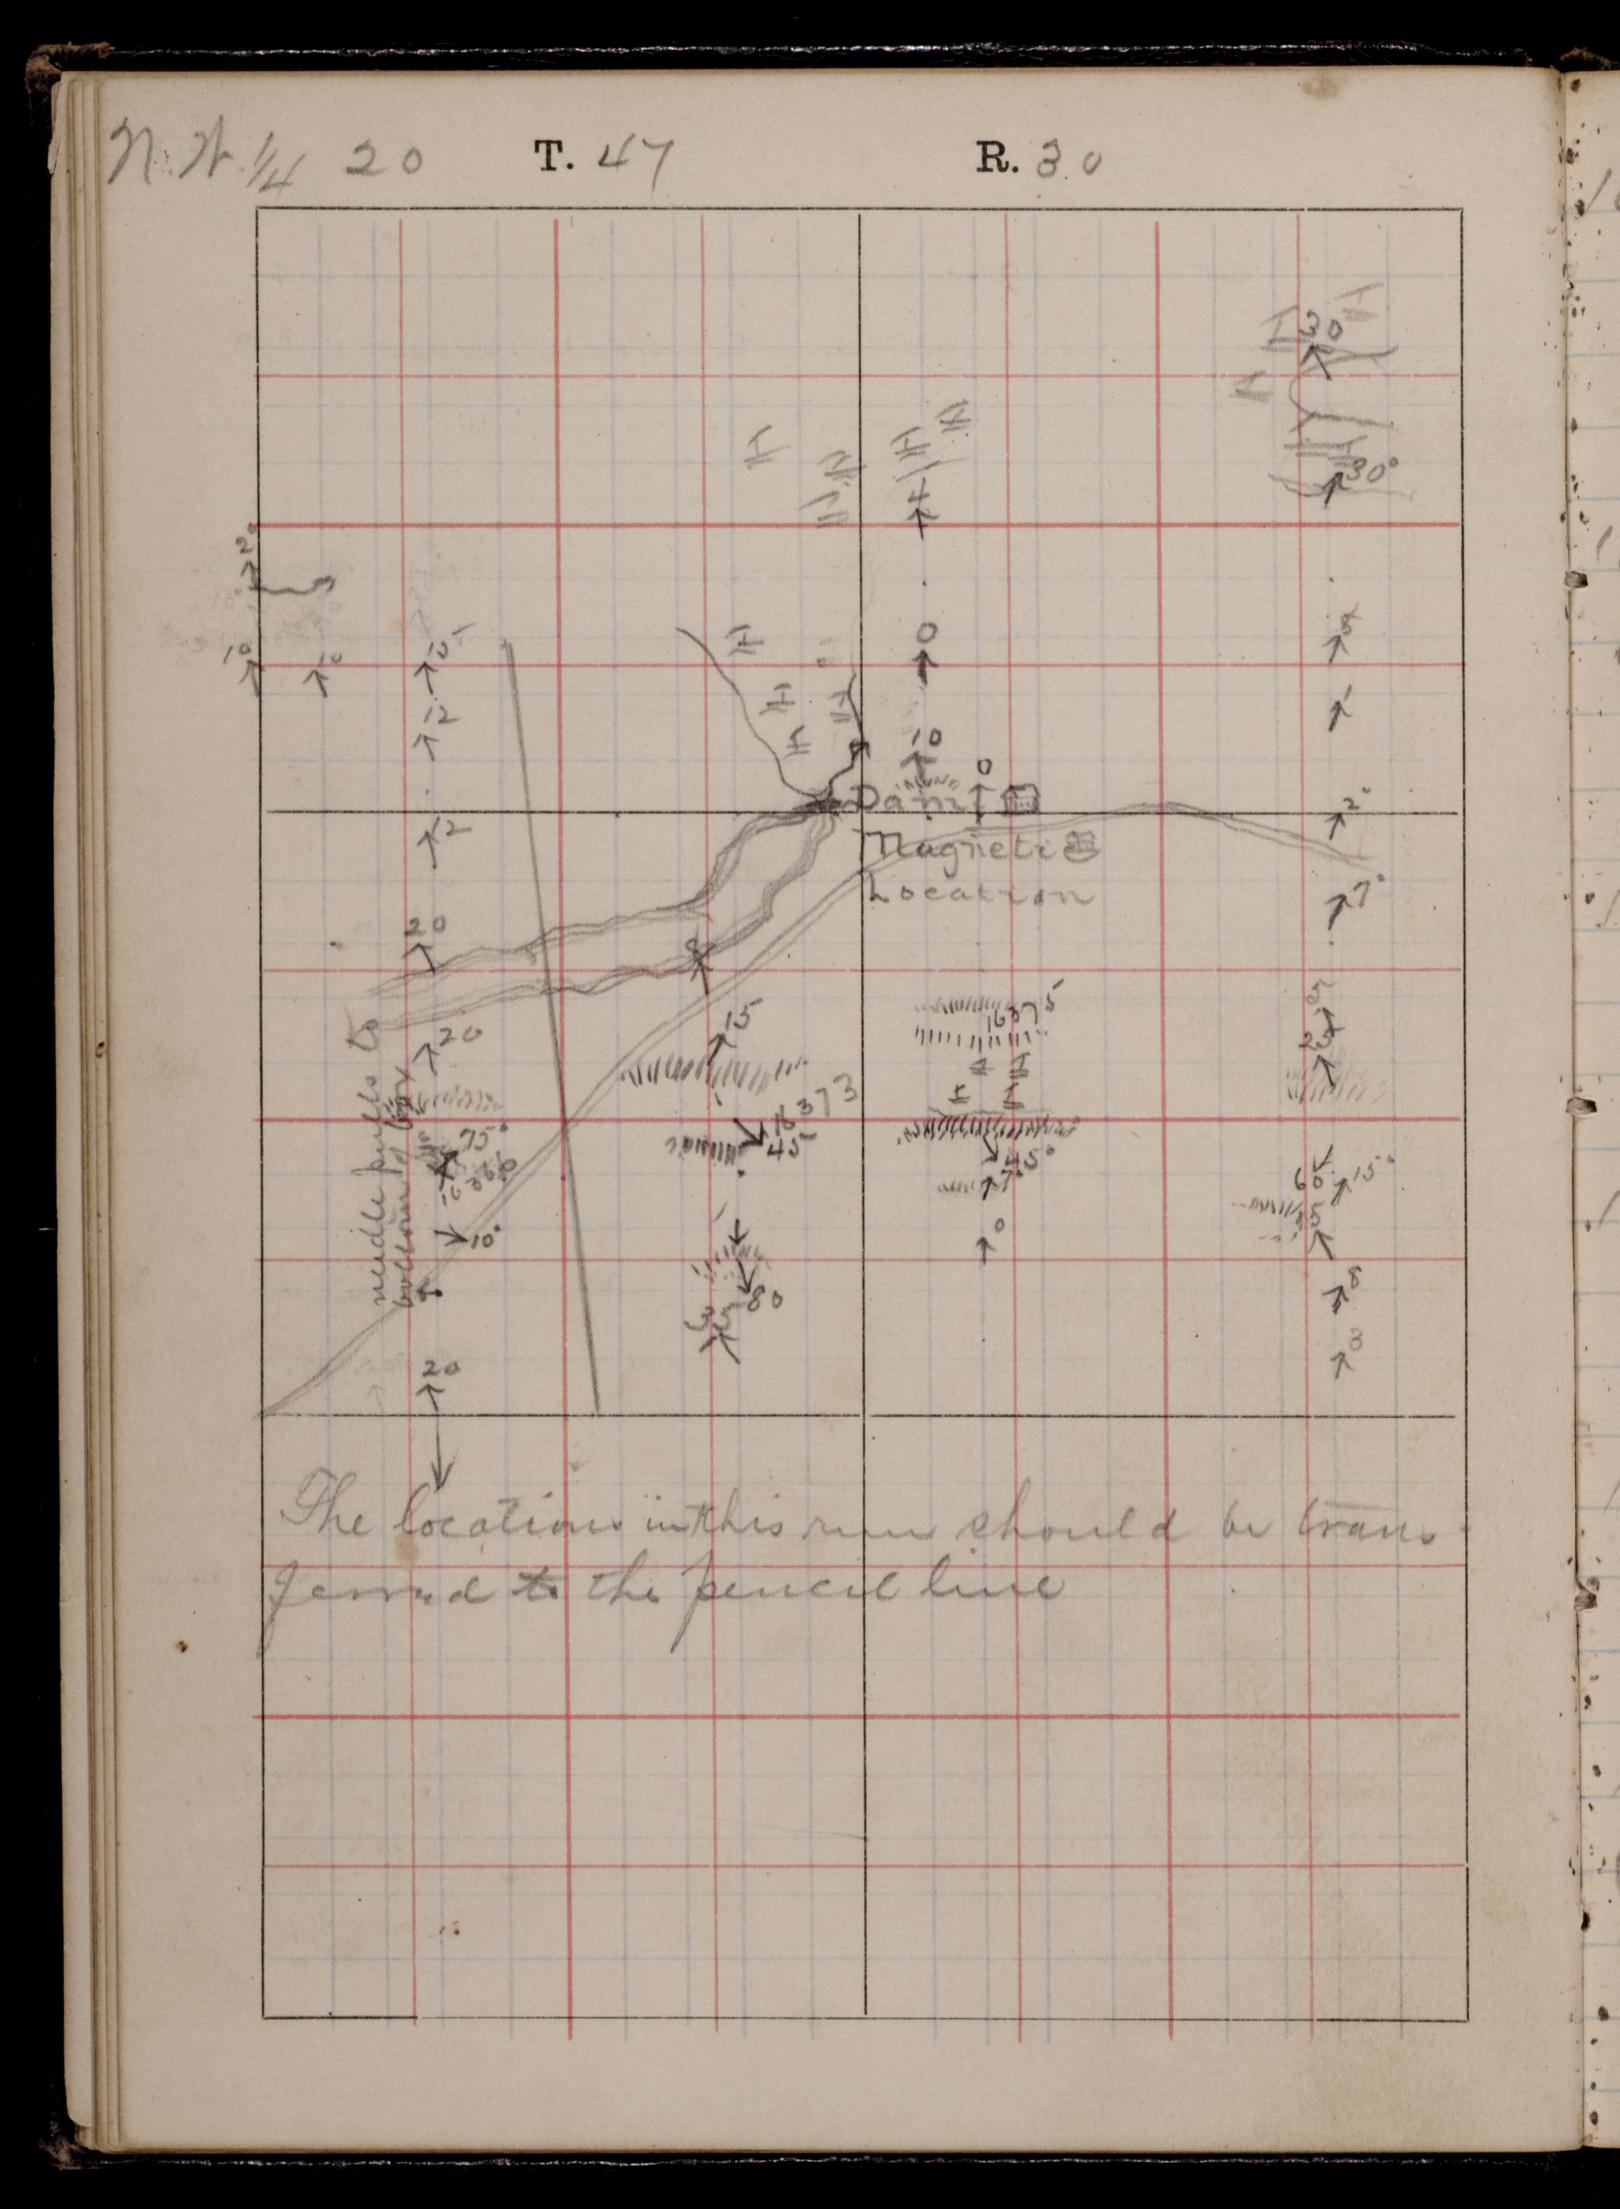 N.W. 1/4 20 T. 47 R. 30
30
30°
4
2°
0
5
10
10
15
1
12
10
0
Dam
2°
12
Magnetic
Location
7°
20
8
15
16375
20
25
needle pulls to
bottom of box
16373
75°
45
45°
7°
60
15°
10°
0
5
8
80
35
3
20
The locations in this run should be trans-
ferred to the pencil line